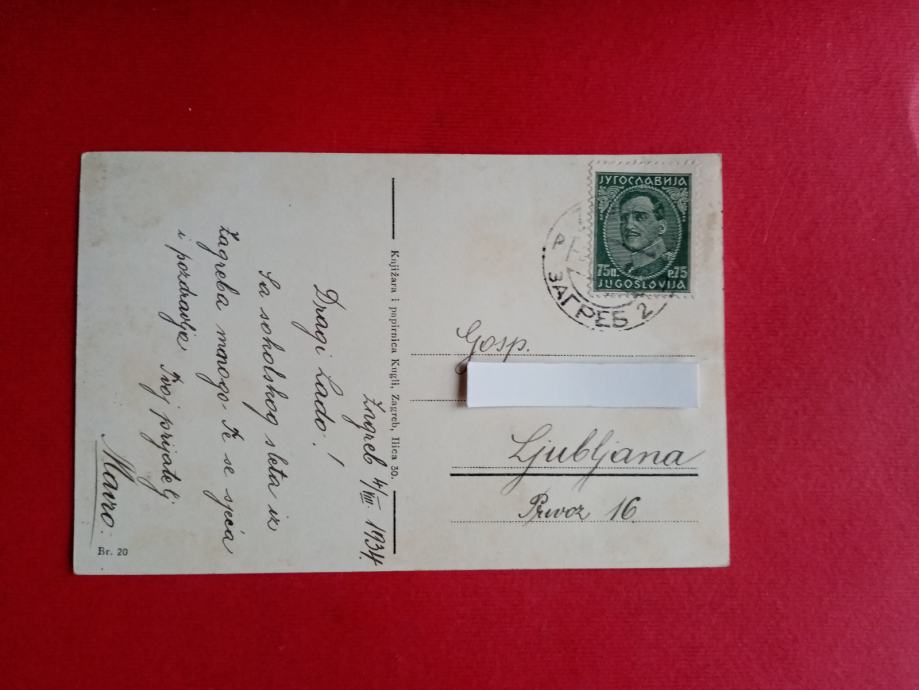 Zagreb 4/VIII. 1934.
Dragi Lado!
Sa sokolskog sleta iz
Zagreba mnogo Te se sjeća
i pozdravlja Tvoj prijatelj
Mavro.
Br. 20
Knjižara i papirnica Kugli, Zagreb, Ilica 30.
ЈУГОСЛАВИЈА
75П. P.75
JUGOSLOVIJA
ЗАГРЕБ 2
Gosp.
Ljubljana
Prevoz 16.